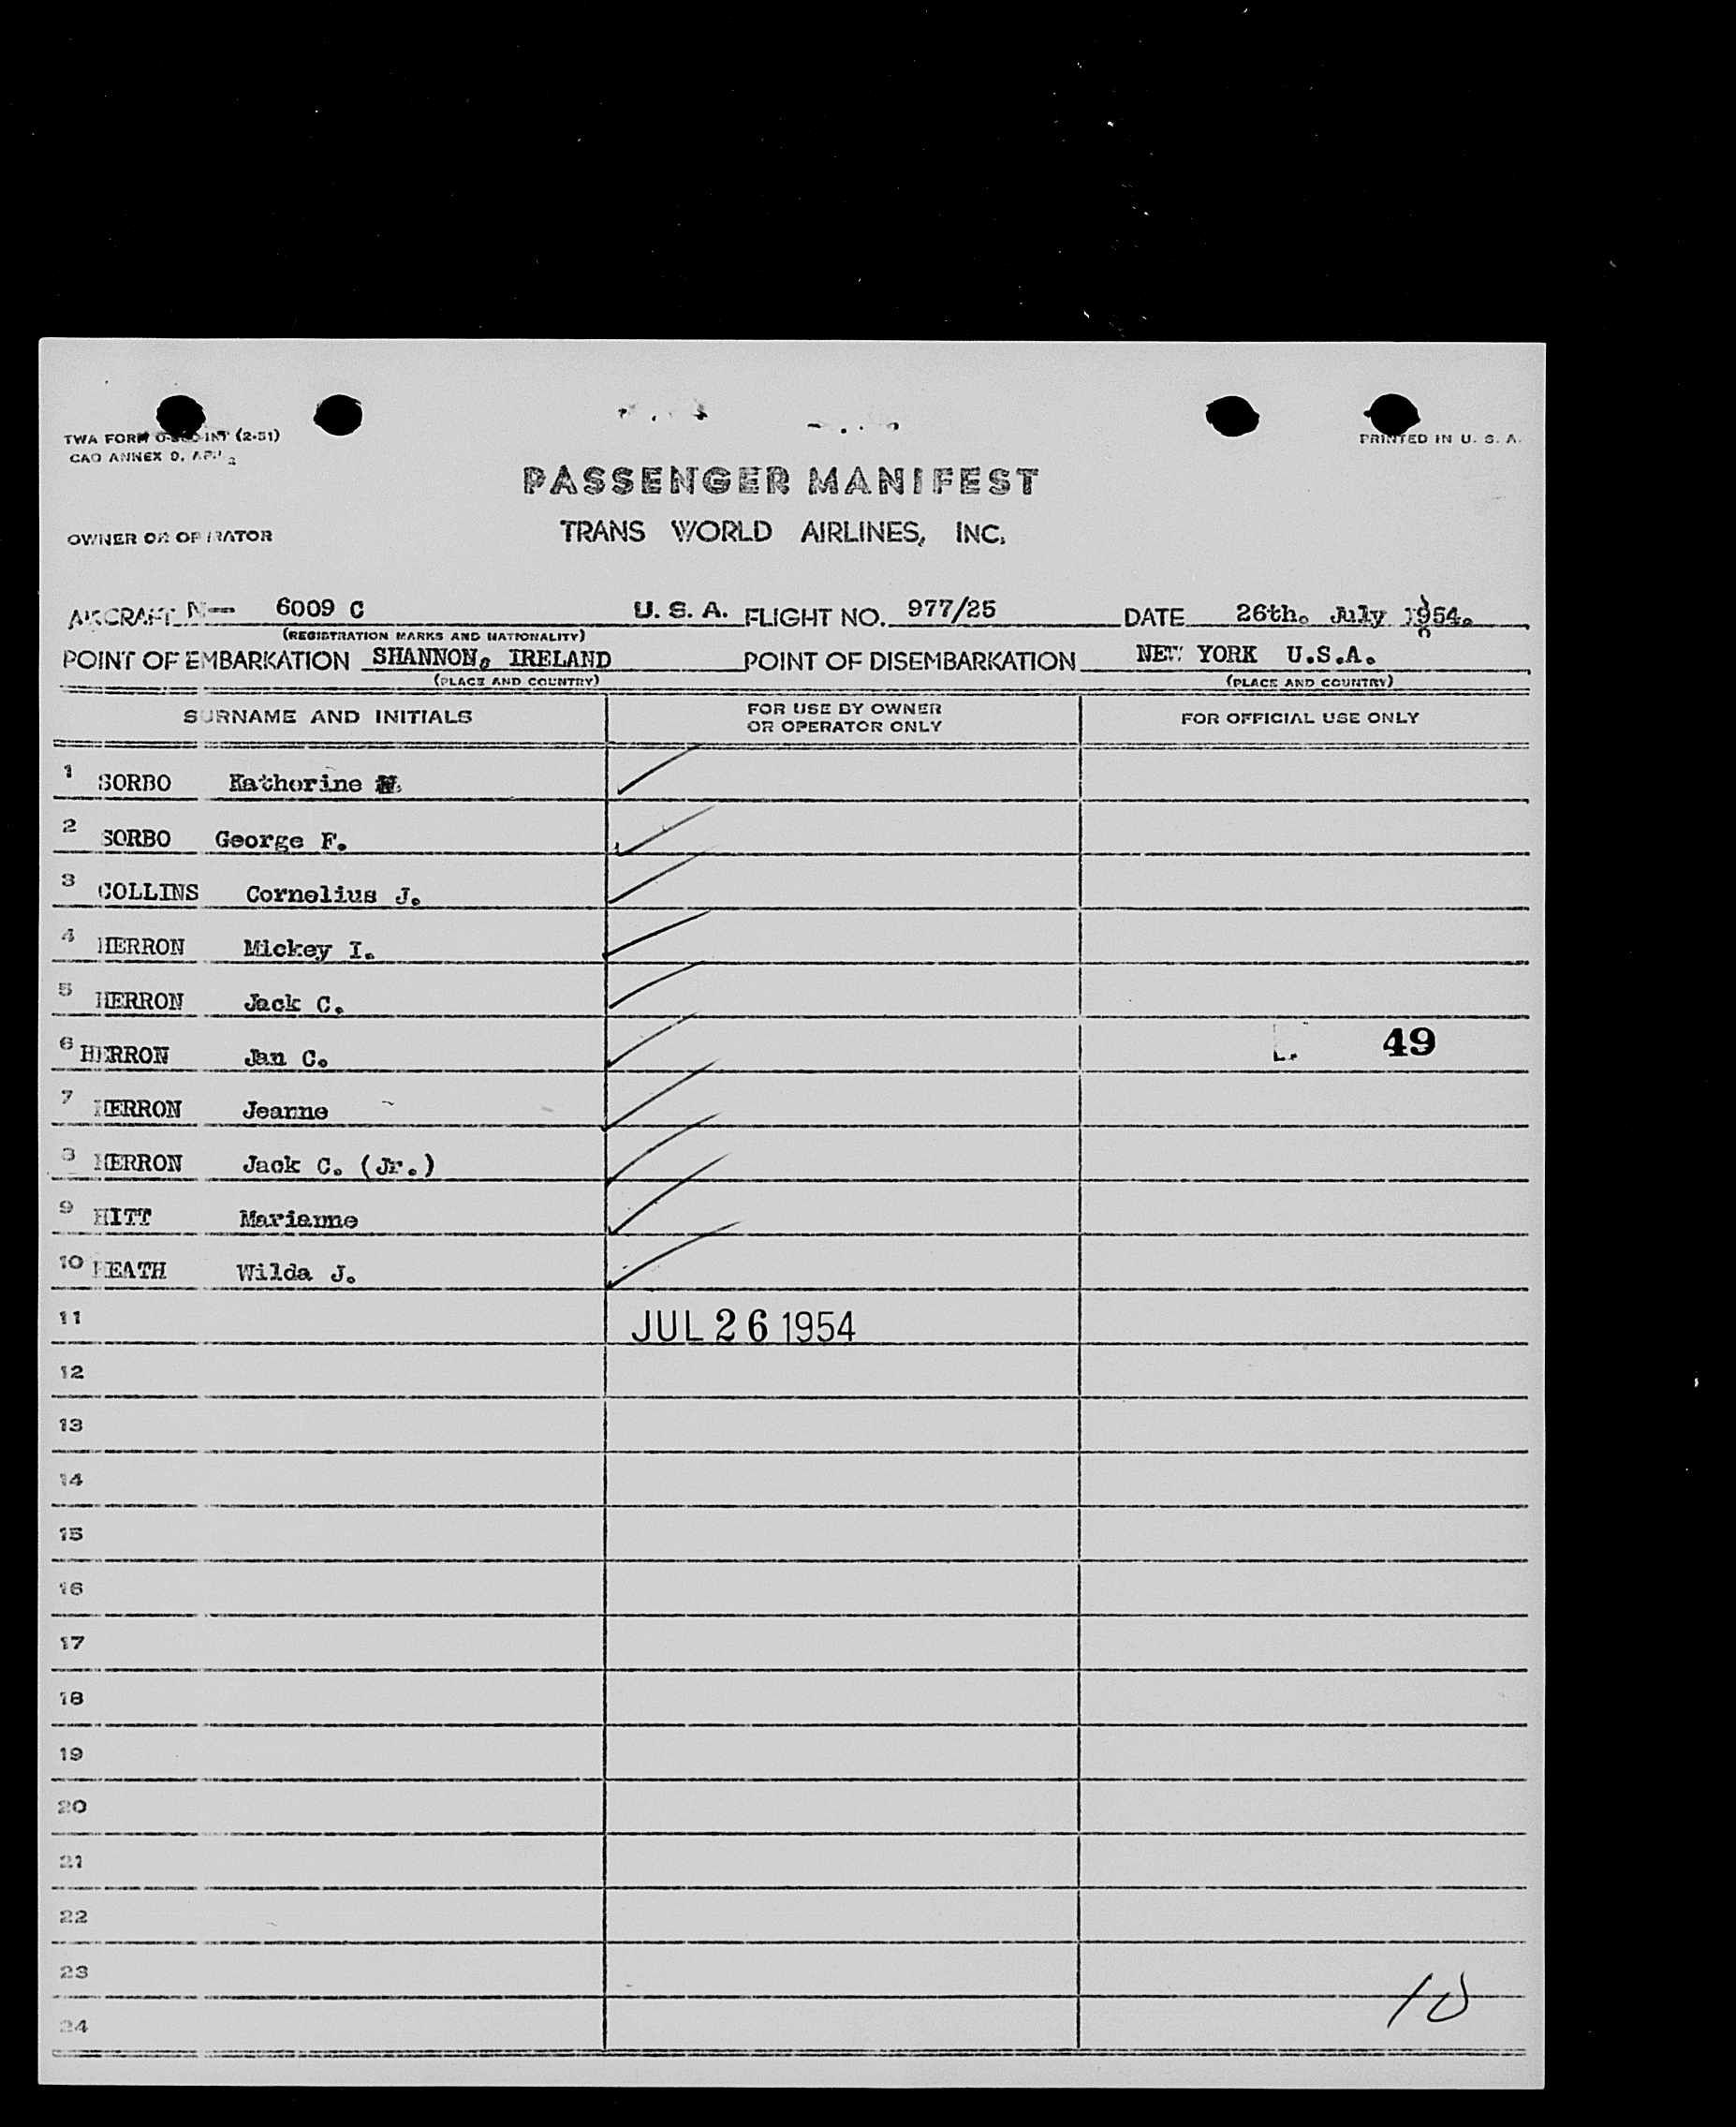 TWA FORM (2-51)
PRINTED IN U. S. A.
CAO ANNEX 9,
PASSENGER MANIFEST
OWNER OR OPERATOR
TRANS WORLD AIRLINES, INC.
AIRCRAFT N— 6009 C U. S. A. FLIGHT NO. 977/25 DATE 26th. July 1954.
(REGISTRATION MARKS AND NATIONALITY)
POINT OF EMBARKATION SHANNON, IRELAND POINT OF DISEMBARKATION NEW YORK U.S.A.
(PLACE AND COUNTRY) (PLACE AND COUNTRY)
SURNAME AND INITIALS FOR USE BY OWNER OR OPERATOR ONLY FOR OFFICIAL USE ONLY
1 SORBO Katherine
2 SORBO George F.
3 COLLINS Cornelius J.
4 HERRON Mickey I.
5 HERRON Jack C.
6 HERRON Jan C. 49
7 HERRON Jeanne
8 HERRON Jack C. (Jr.)
9 HITT Marianne
10 HEATH Wilda J.
11 JUL 26 1954
12
13
14
15
16
17
18
19
20
21
22
23
10
24